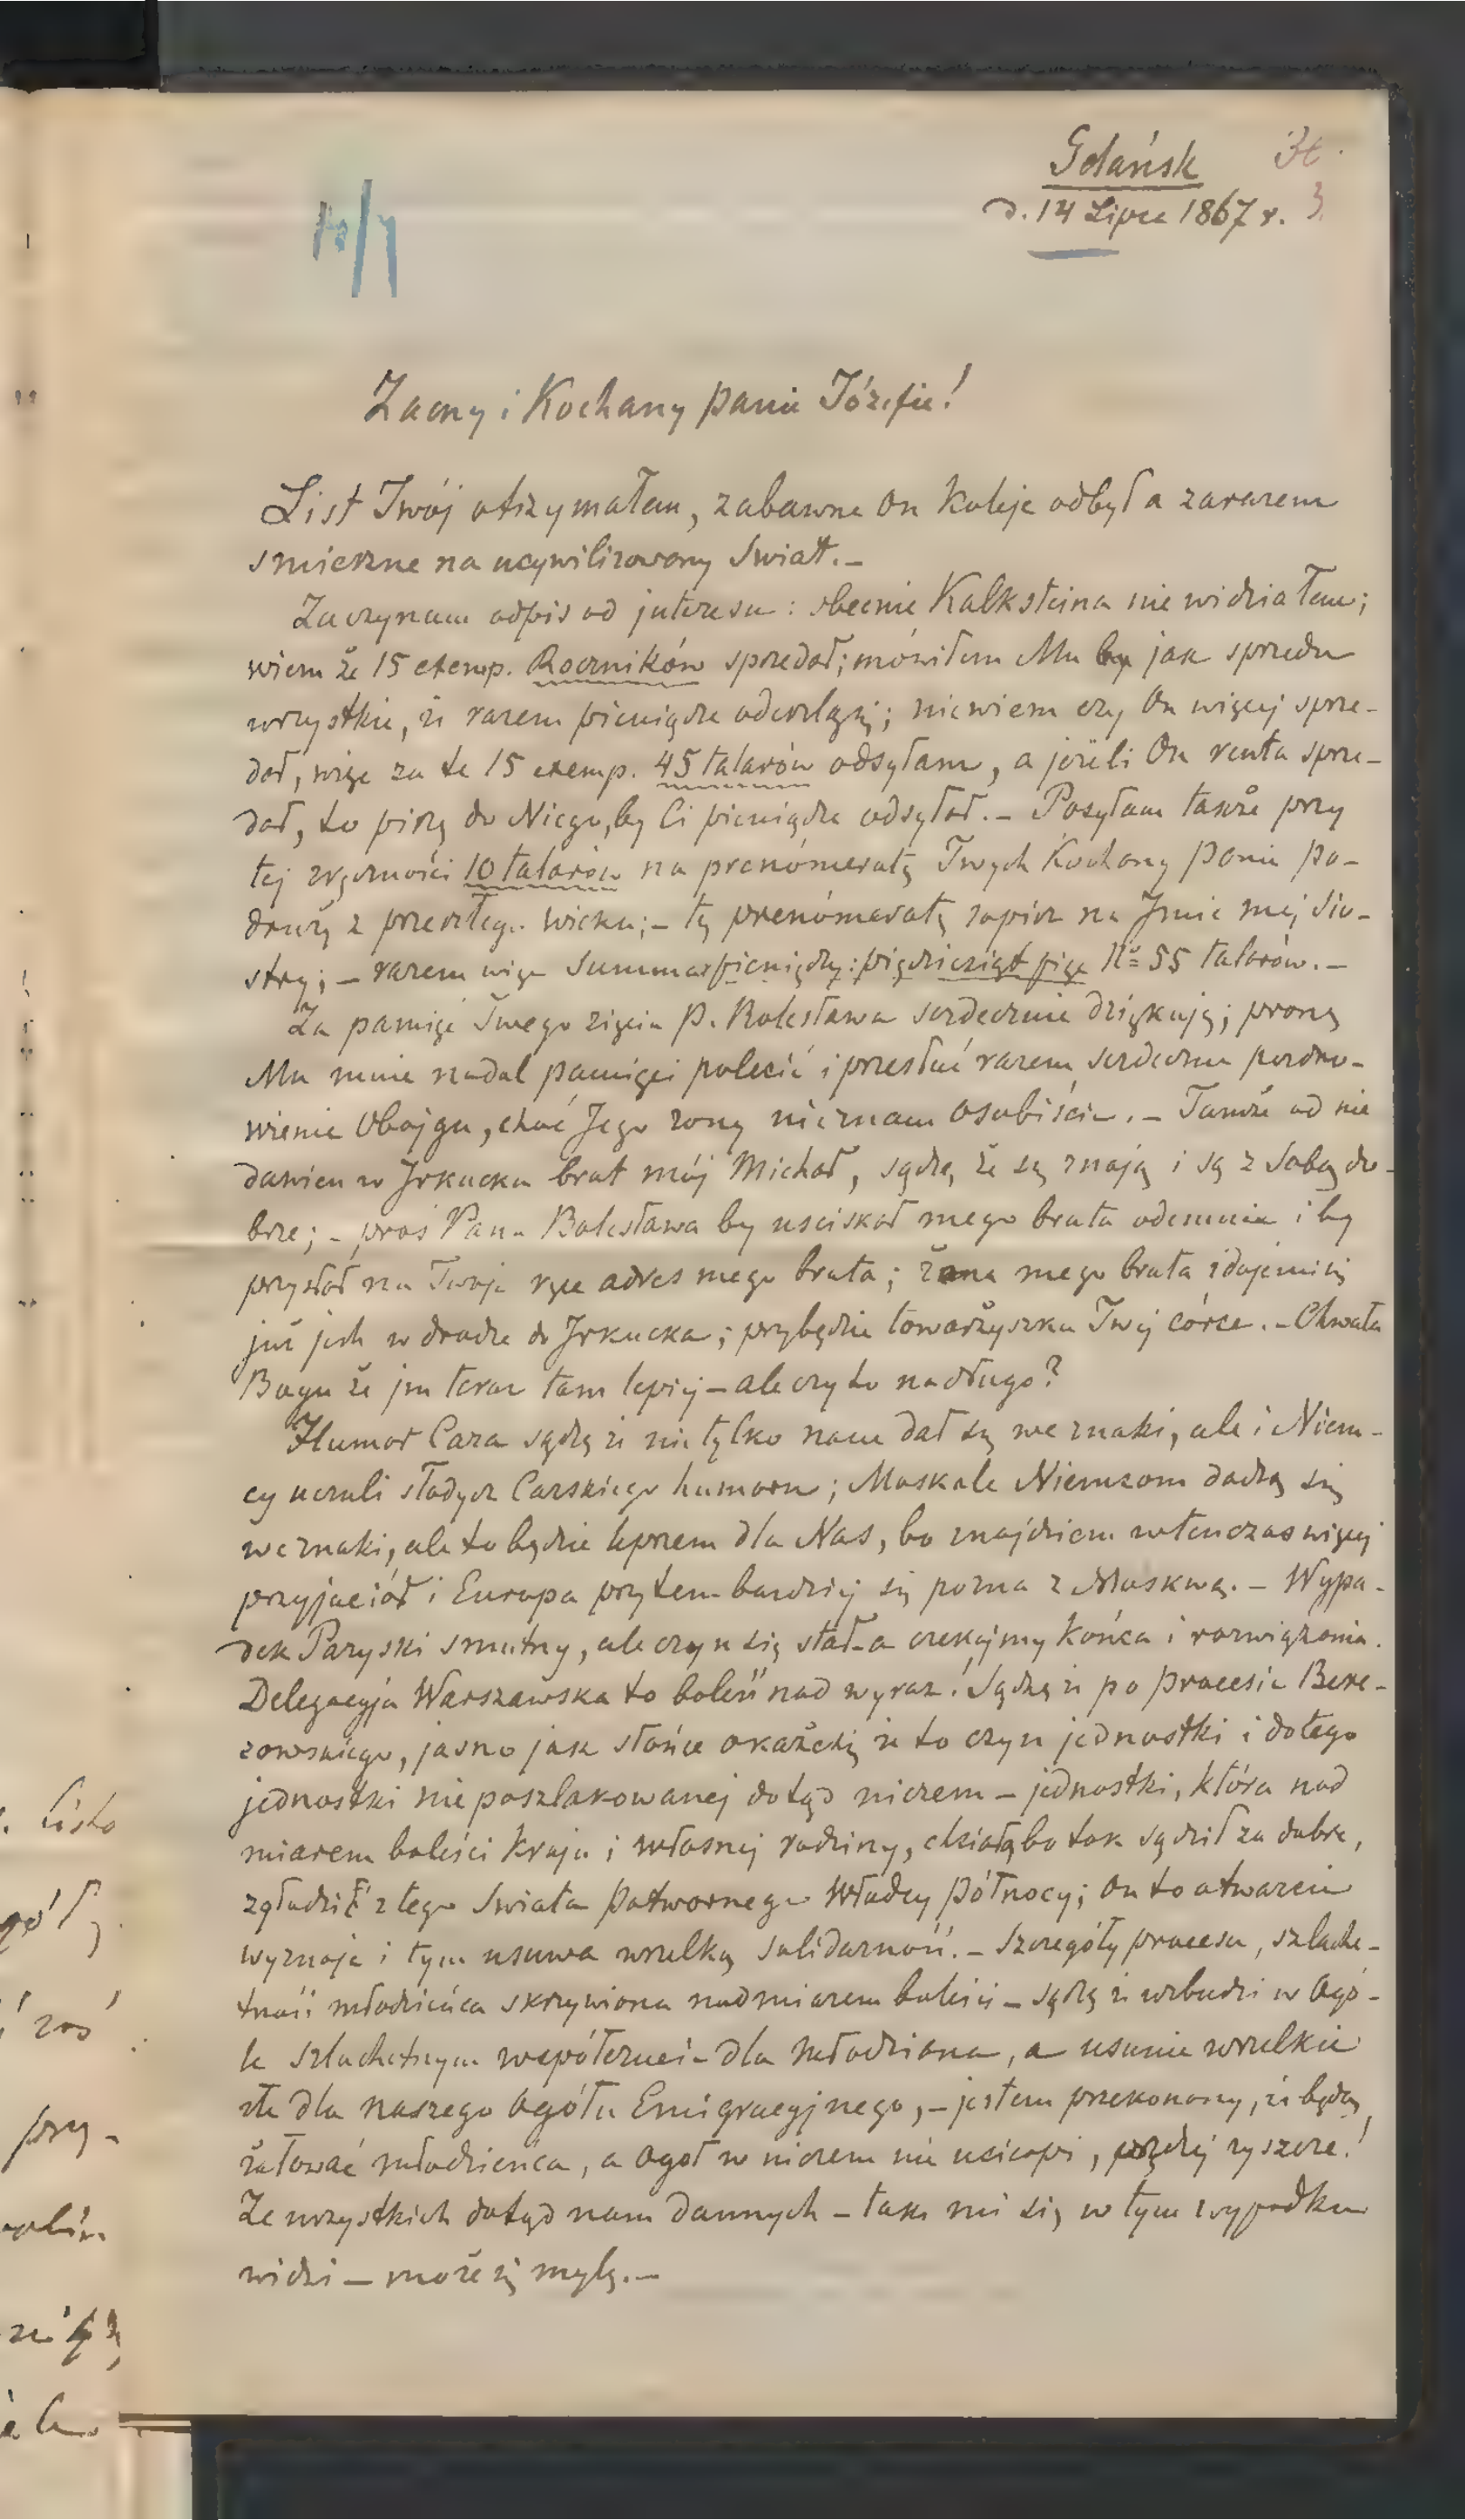 Gdańsk
d. 14 Lipca 1867 r.
Zacny i Kochany panie Józefie!
List Twój otrzymałem, zabawne On koleje odbył a zarazem
smieszne na ucywilizowany Swiat.–
Zaczynam odpis od juteresu: obecnie Kalksteina nie widziałem;
wiem że 15 exemp. Roczników sprzedał; mówiłem Mu by jak sprzeda
wszystkie, iż razem pieniądze odeszlę; niewiem czy On więcej sprze-
dał, więc za te 15 exemp. 45 talarów odsyłam, a jeżeli On reszta sprze-
dał, to piszę do Niego, by Ci pieniądze odsyłał.– Posyłam także przy
tej zręczności 10 talarów na prenómeratę Twych Kochany panie po-
druży z przeszłego wieku;– tę prenómeratę zapisz na Jmie mej Sio-
stry;– razem więc Summa pieniędzy: pięćdziesiąt pięć N= 55 talarów.–
Za pamięć Twego zięcia p. Bolesława serdecznie dziękuję; proszę
Mu mnie nadal pamięci polecić i przesłać razem serdeczne pozdro-
wienie Obojgu, choć Jego zony nieznam osobiście.– Tamże od nie
dawien w Jrkucku brat mój Michał, sądzę, że się znają i są z Sobą do-
brze;– proś Pana Bolesława by usciskał mego brata odemnie i by
przysłał na Twoje ręce adres mego brata; żona mego brata zdajemisię
już jest w drodze do Jrkucka; przybędzie towarzyszka Twej córce.– Chwała
Bogu że jm teraz tam lepiej – ale czy to na długo?
Humor Cara sądzę iż nie tylko nam dał się we znaki, ale i Niem-
cy uczuli słodycz Carskiego humoru; Moskale Niemcom dadzą się
we znaki, ale to będzie lepszem dla Nas, bo znajdziem wtenczas więcej
przyjaciół i Europa przytem bardziej się pozna z Moskwą.– Wypa-
dek Paryski smutny, ale czyn się stał – a czekajmy końca i rozwiązania.
Delegacyja Warszawska to boleść nad wyraz! Sądzę iż po procesie Bere-
zowskiego, jasno jak słońce okaże się iż to czyn jednostki i do tego
jednostki nie poszlakowanej dotąd niczem – jednostki, która nad
miarem boleści kraju i własnej rodziny, chciała, bo tak sądził za dobre,
zgładzić z tego Swiata potwornego Władcy północy; On to otwarcie
wyznaje i tym usuwa wszelką solidarność.– Szczegóły procesu, szlache-
tność młodzieńca skrzywiona nadmiarem boleści – sądzę iż wzbudzi w Ogó-
le szlachetnym współczucie dla młodziana, a usunie wszelkie
złe dla naszego Ogółu Emigracyjnego,– jestem przekonany, iż będą
żałować młodzieńca, a Ogół w niczem nie ucierpi, prędzej zyszcze!
Ze wszystkich dotąd nam dannych – tak mi się w tym wypadku
widzi – może się mylę.–